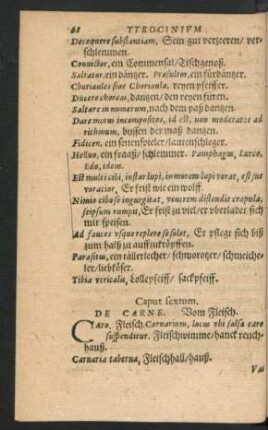 68 TYROCINIVM
Decoquere substantiam, Sein gut verzeeren/ ver-
schlemmen.
Convictor, ein Commensal/ Dischgenoß.
Saltator, ein däntzer. Præsultor, ein fürdäntzer.
Choriaules sive Choraula, reyen pfeiffer.
Ducere choreas, dantzen/ den reyen füren.
Saltare in numerum, nach dem maß dantzen.
Dare motus incompositos, id est, non moderatos ad
rithmum, vusser der maß dantzen.
Fidicen, ein seitenspieler/ lautenschleger.
Helluo, ein fraaß/ schlemmer. Pamphagus, Lurco,
Edo, idem.
Est multi cibi, instar lupi, in morem lupi vorat, est lupus
voracior, Er frist wie ein wolff.
Nimio cibo se ingurgitat, ventrem distendit crapula,
seipsum rumpit, Er frißt zu viel/ er vberladet sich
mit speisen.
Ad fauces vsque replere se solet, Er pflegt sich biß
zum halß zu auffmköpffen.
Parasitus, ein tällerlecher/ schworotzer/ schmeiche-
ler/ liebkoser.
Tibia vtricularis, Lolleypfeiff/ sackpfeiff.
Caput sextum.
DE CARNE. Vom Fleisch.
CAro, Fleisch. Carnarium, locus vbi salsa caro
suspenditur. Fleischwimme/ hanck reuch-
hauß.
Carnaria taberna, Fleischhall/hauß.